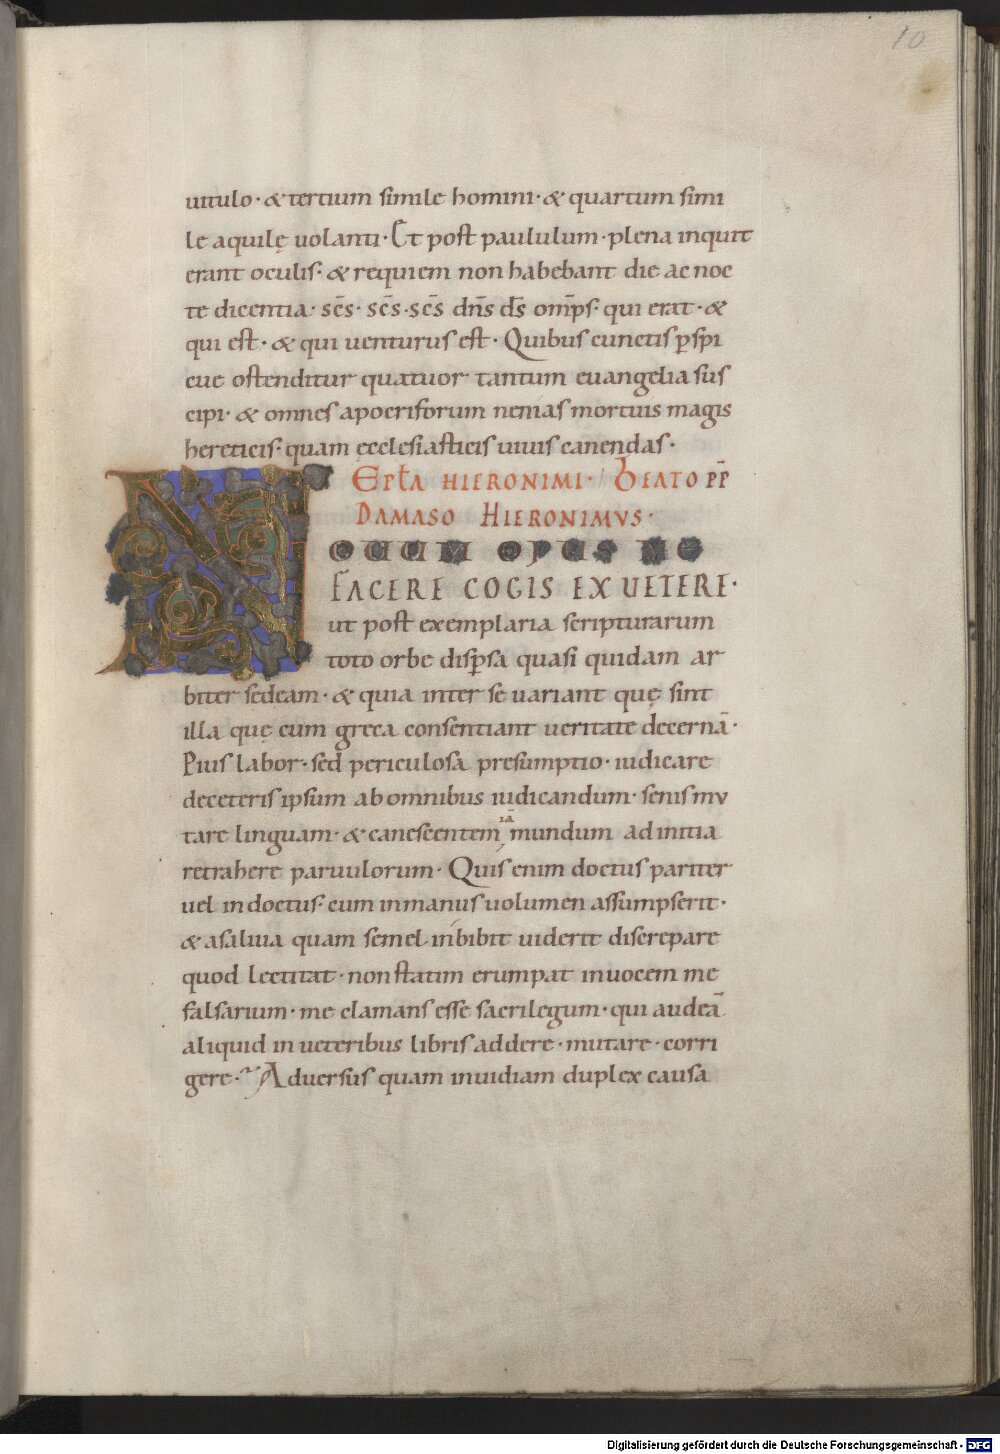 10
uitulo· & tertium simile homini· & quartum simi
le aquilę uolanti· Et post paululum· plena inquit
erant oculis· & requiem non habebant die ac noc
te dicentia· sc̄s· sc̄s· sc̄s dn̄s ds̄ om̄ps· qui erat· &
qui est· & qui uenturus est· Quibus cunctis p̱spi
cue ostenditur quatuor tantum euangelia sus
cipi· & omnes apocrisorum nenias mortuis magis
hereticis· quam ęcclesiasticis uiuis canendas·
EPŁA HIERONIMI· BEATO PP̄
DAMASO HIERONIMVS·
NOUUM OPUS ME
FACERE COGIS EX UETERE·
ut post exemplaria scripturarum
toto orbe disp̱sa quasi quidam ar
biter sedeam· & quia inter se uariant quę sint
illa quę cum greca consentiant ueritate decernā·
Pius labor· sed periculosa presumptio· iudicare
deceteris ipsum ab omnibus iudicandum· senis mu
tare linguam· & canescentem iā mundum ad initia
retrahere paruulorum· Quis enim doctus pariter
uel indoctus· cum in manus uolumen assumpserit·
& a saliua quam semel inbibit uiderit discrepare
quod lectitat· non statim erumpat in uocem me
falsarium· me clamans esse sacrilegum· qui audeā
aliquid in ueteribus libris addere· mutare· corri
gere· Aduersus quam inuidiam duplex causa
Digitalisierung gefördert durch die Deutsche Forschungsgemeinschaft - DFG